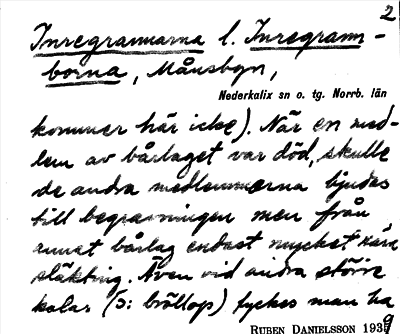 2
Inregrannarna l. Inregrann-
borna, Månsbyn,
Nederkalix sn o. tg. Norrb. län
kommer här icke). När en med-
lem av bårlaget var död, skulle
de andra medlemmarna bjudas
till begravningen men från
annat bårlag endast mycket nära
släkting. Även vid andra större
kalas (ɔ: bröllop) tyckes man ha
RUBEN DANIELSSON 1939